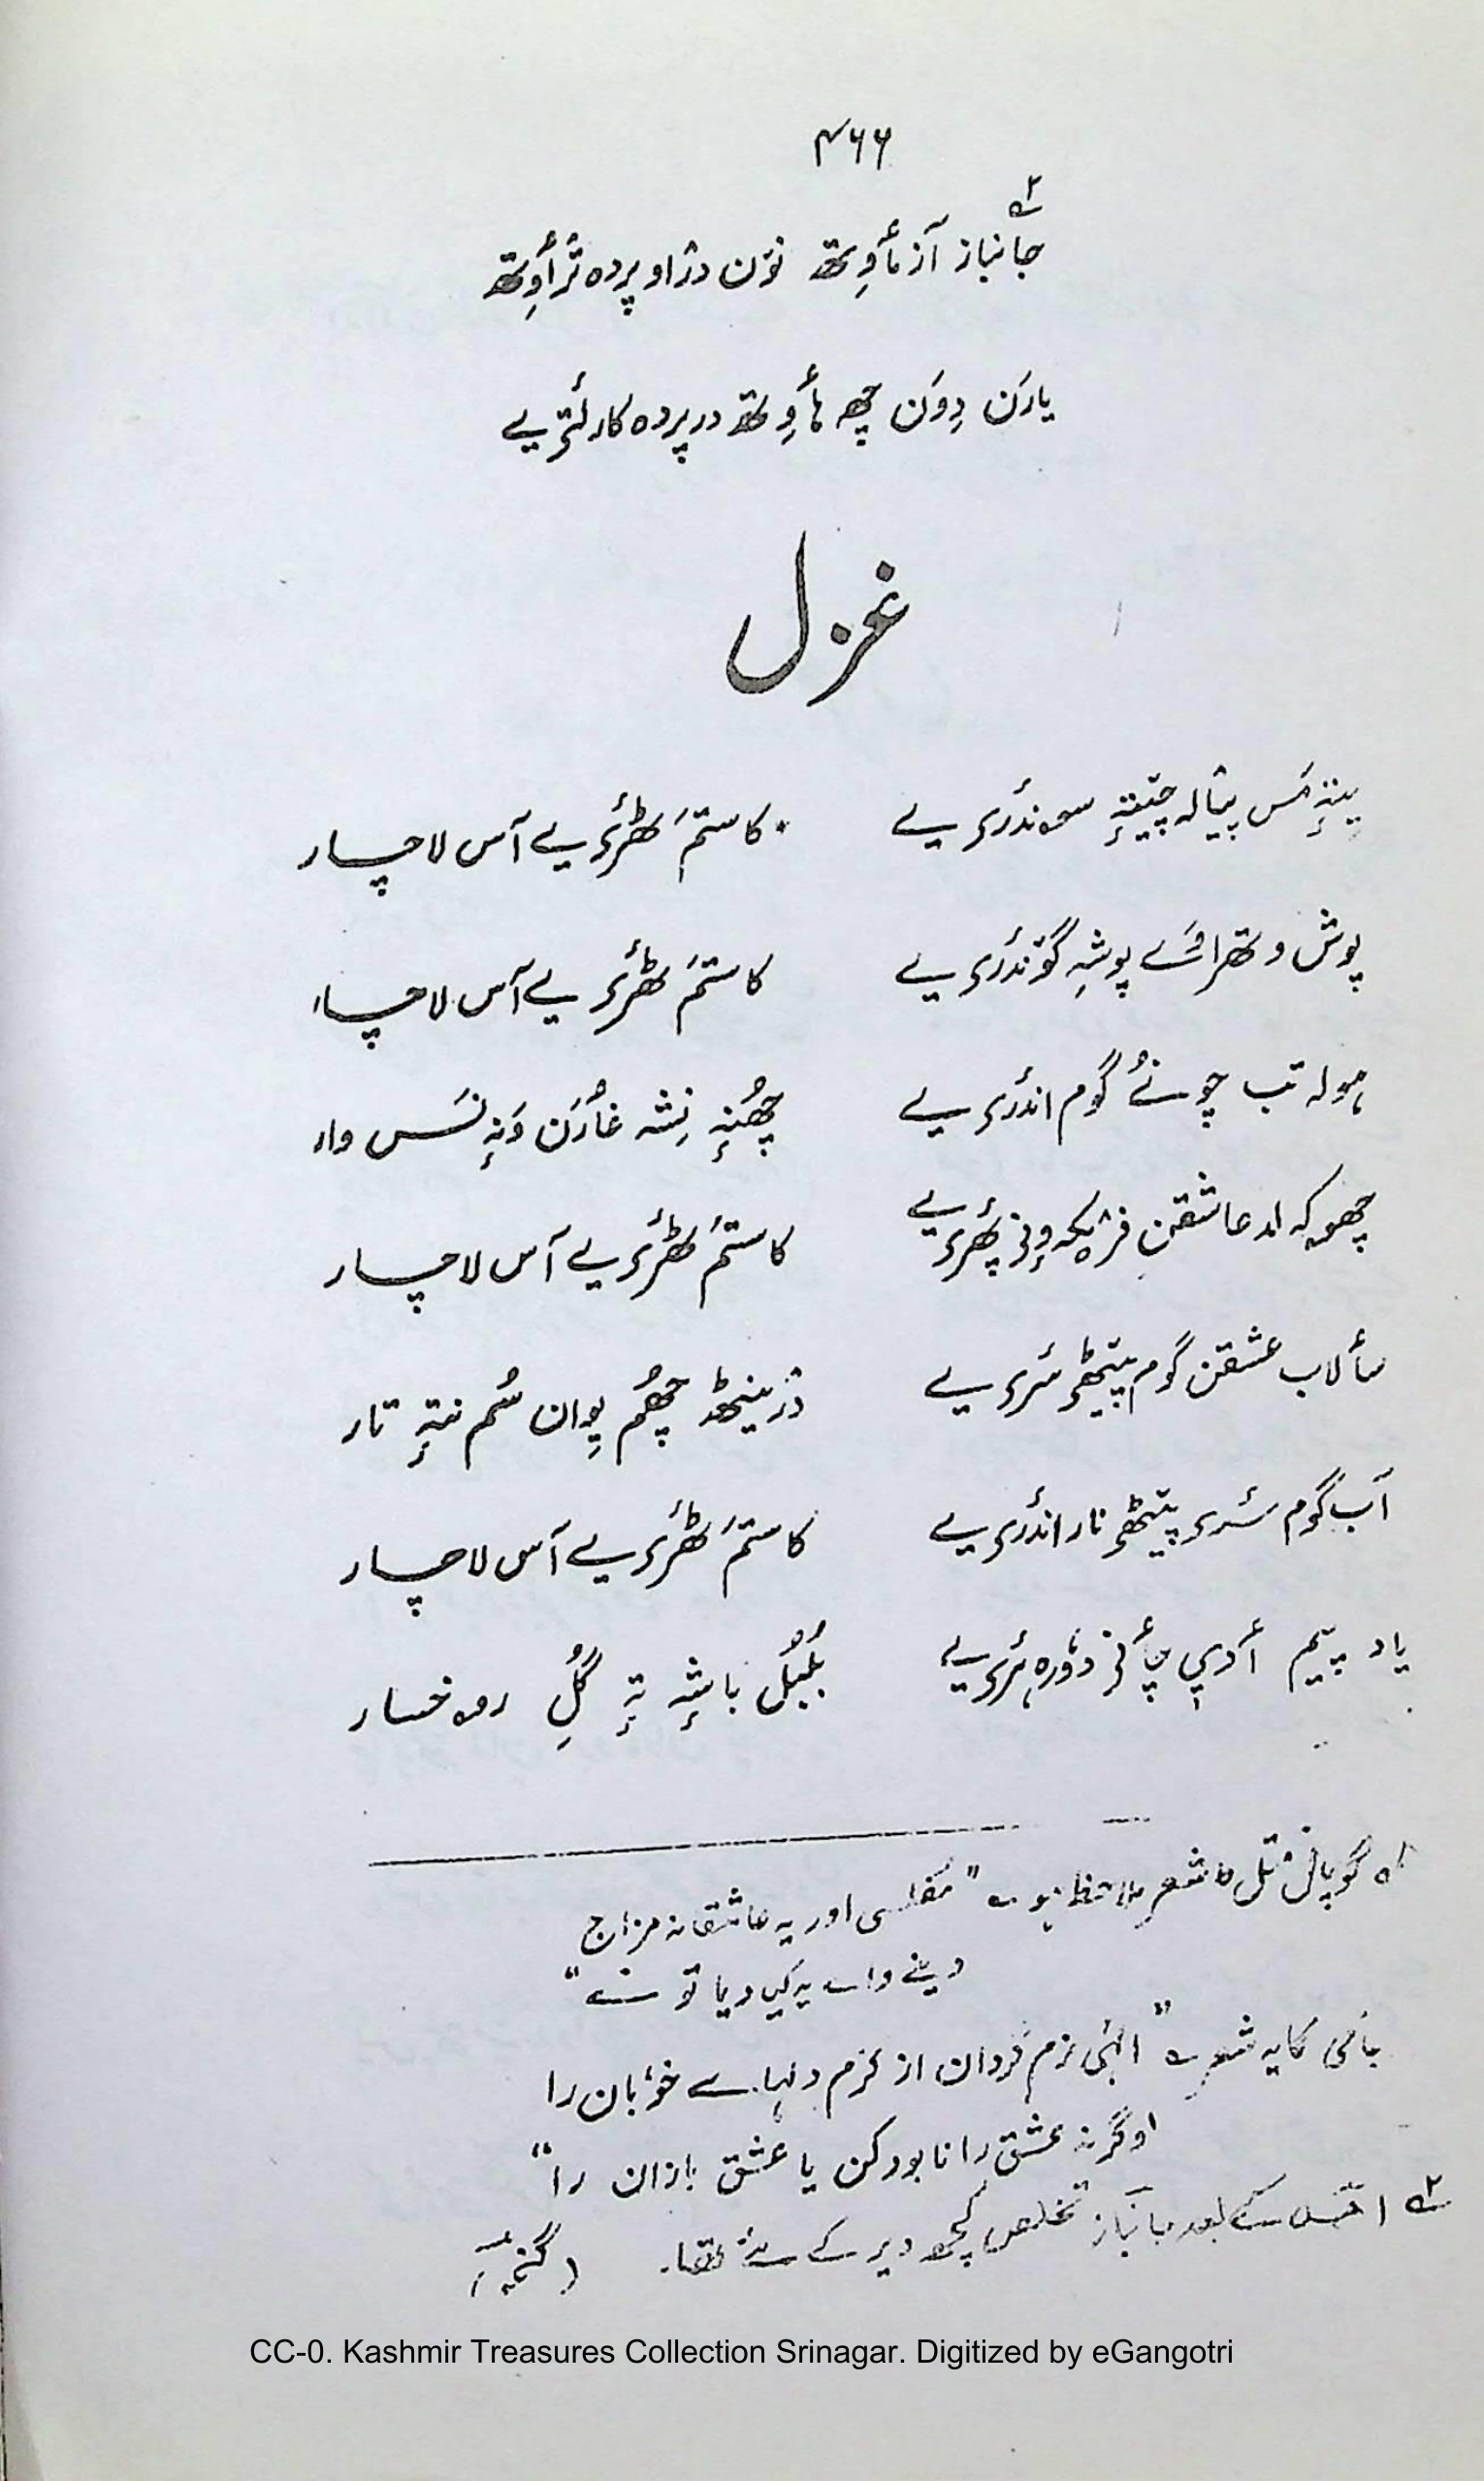 ۴۶۶
جانباز آزمأوِتھ نۆن دژاو پردہ ترٲوِتھ
یارَن دِوَن چھ ہأوِتھ در پردہ کار لٔتۍ یے
غزل
مَس پیالہ چیتہٕ سوندٔرۍ یے
کاستمَ ٹھٔرۍ یے آس لاچار
پوش وتھراوَے پوشہِ گۆندٔرۍ یے
کاستمَ ٹھٔرۍ یے آس لاچار
ہولہ تب چونُے گوم اندٔرۍ یے
چھُنہٕ نِشہ غٲرَن وَنہٕ نَس وار
عاشقن
کاستمَ ٹھٔرۍ یے آس لاچار
سأ لاب عشقن گوم پیٹھۍ سٔرۍ یے
ژینٹھ چھُم پِوان سُم نتہٕ تار
آب گوم سٔرۍ پیٹھۍ نار اندٔرۍ یے
کاستمَ ٹھٔرۍ یے آس لاچار
یاد پیم
بُلبُل باشہٕ تہٕ گُلِ روخسار
گوپال متل کا شعر ملاحظہ ہو ے "مفلسی اور یہ عاشقانہ مزاج
دینے والے یہ کیا دیا تو نے"
جامی کا یہ شعر ے "الٰہی نرم گردان از کرم دلہاے خوبان را
اوگرنہ عشق را نابود کن یا عشق بازان را"
۲ے اس کے بعد جانباز تخلص کچھ دیر کے لئے تھا۔
CC-0. Kashmir Treasures Collection Srinagar. Digitized by eGangotri